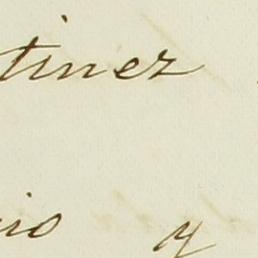 tinez
io y